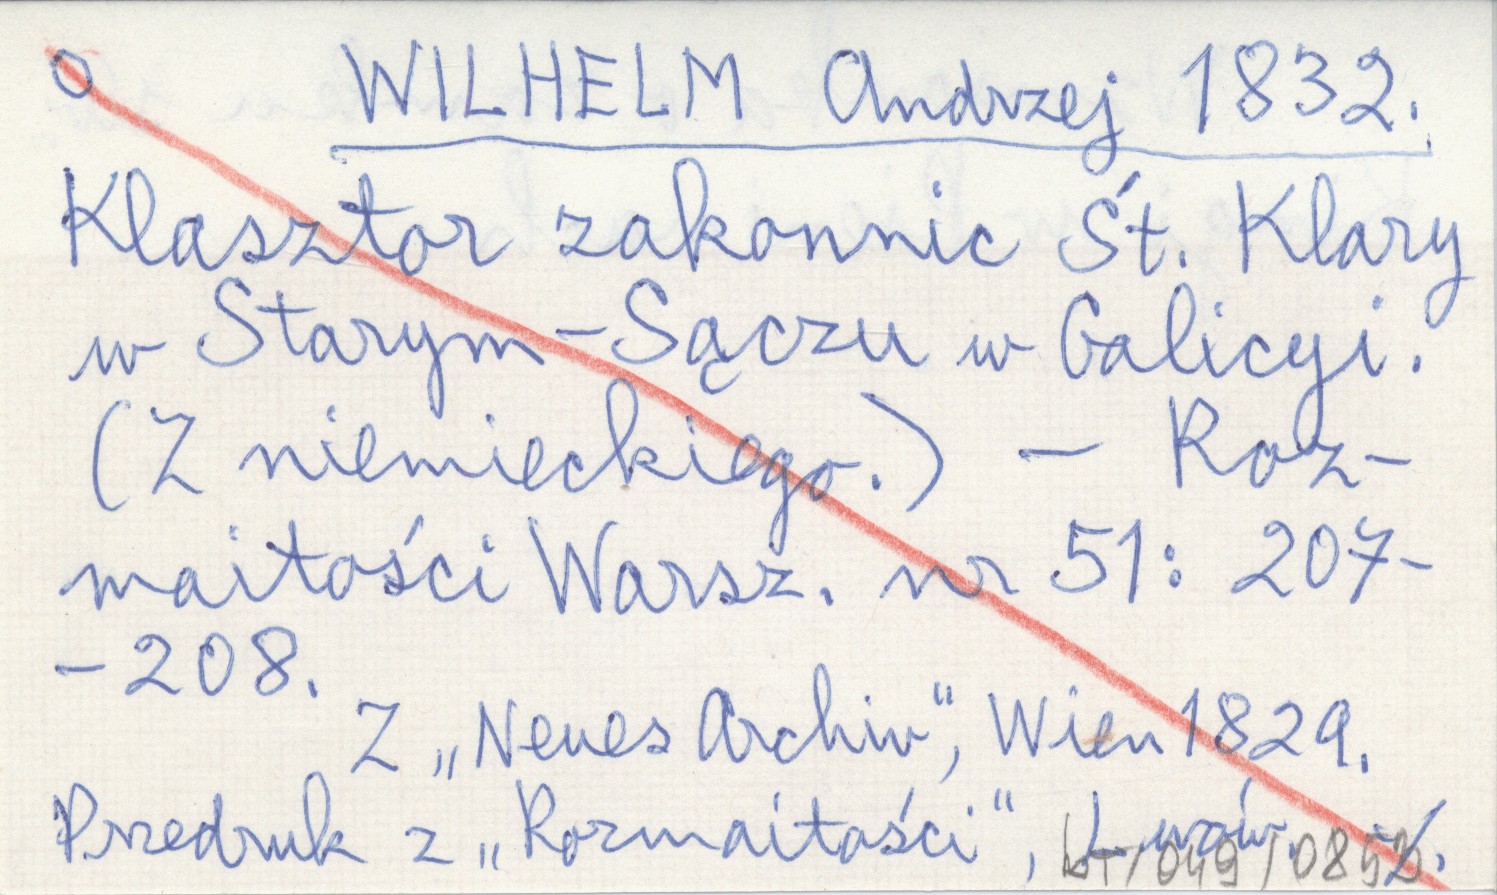 O WILHELM Andrzej 1832.
Klasztor zakonnic Śt. Klary
w Starym-Sączu w Galicyi.
(Z niemieckiego.) - Roz-
maitości Warsz. nr 51: 207-
-208.
Z „Neues Archiv", Wien 1829.
Przedruk z „Rozmaitości", Lwów.